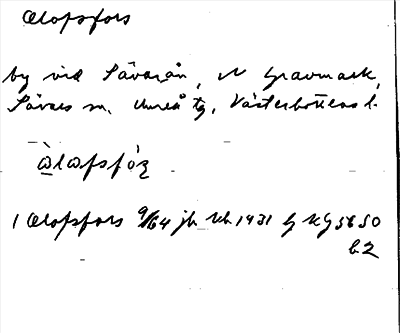 Olofsfors
by vid Sävarån, N Gravmark,
Sävars sn, Umeå tg, Västerbottens l.
1 Olofsfors 9/64 jb 1931 g KG 5650
b2